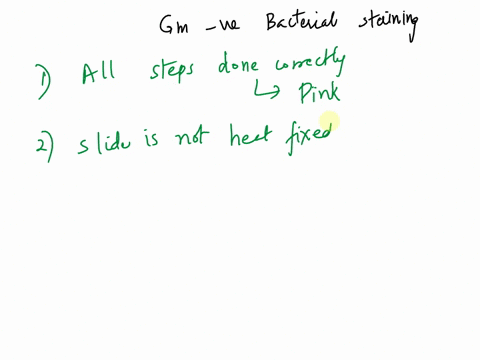 Gm -ve Bacterial staining
1) All steps done correctly
↳ Pink
2) slide is not heat fixed